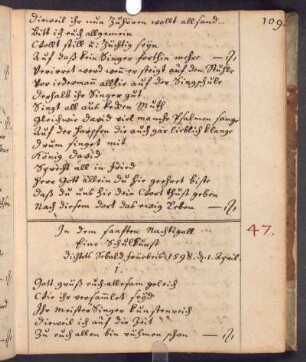 109.
dieweil ihr nun Zuhören wollt all sand
Bitt ich euch allgemein
Wollt still u: züchtig seyn
Auf daß kein Singer forthin mehre
Verirret werd wen er steigt auf den Stuhl
Vor iederman allhie auf der Singschule
derhalb ihr Singer gut
Singt all aus keden Muth
Gleichwie david viel manche Psalmen sange
Auf der Harpfen die auch gar lieblich klange
drum singet mit
König david
Sprecht all in Fried
Herr Gott allein du hie geehret biste
daß du uns hie dein Wort thust geben
Nach diesem dort das ewig Leben
47.
In dem sanften Nachtigall
Eine Schulkunst
dichtets Sebald 1598. d. 1. April.
1.
Gott grüß euch allesam geleich
Wie ihr versamlet seyd
Ihr Meister Singer kunstenreich
dieweil ich auf die Zeit
Zu euch allen bin kuhmen schon